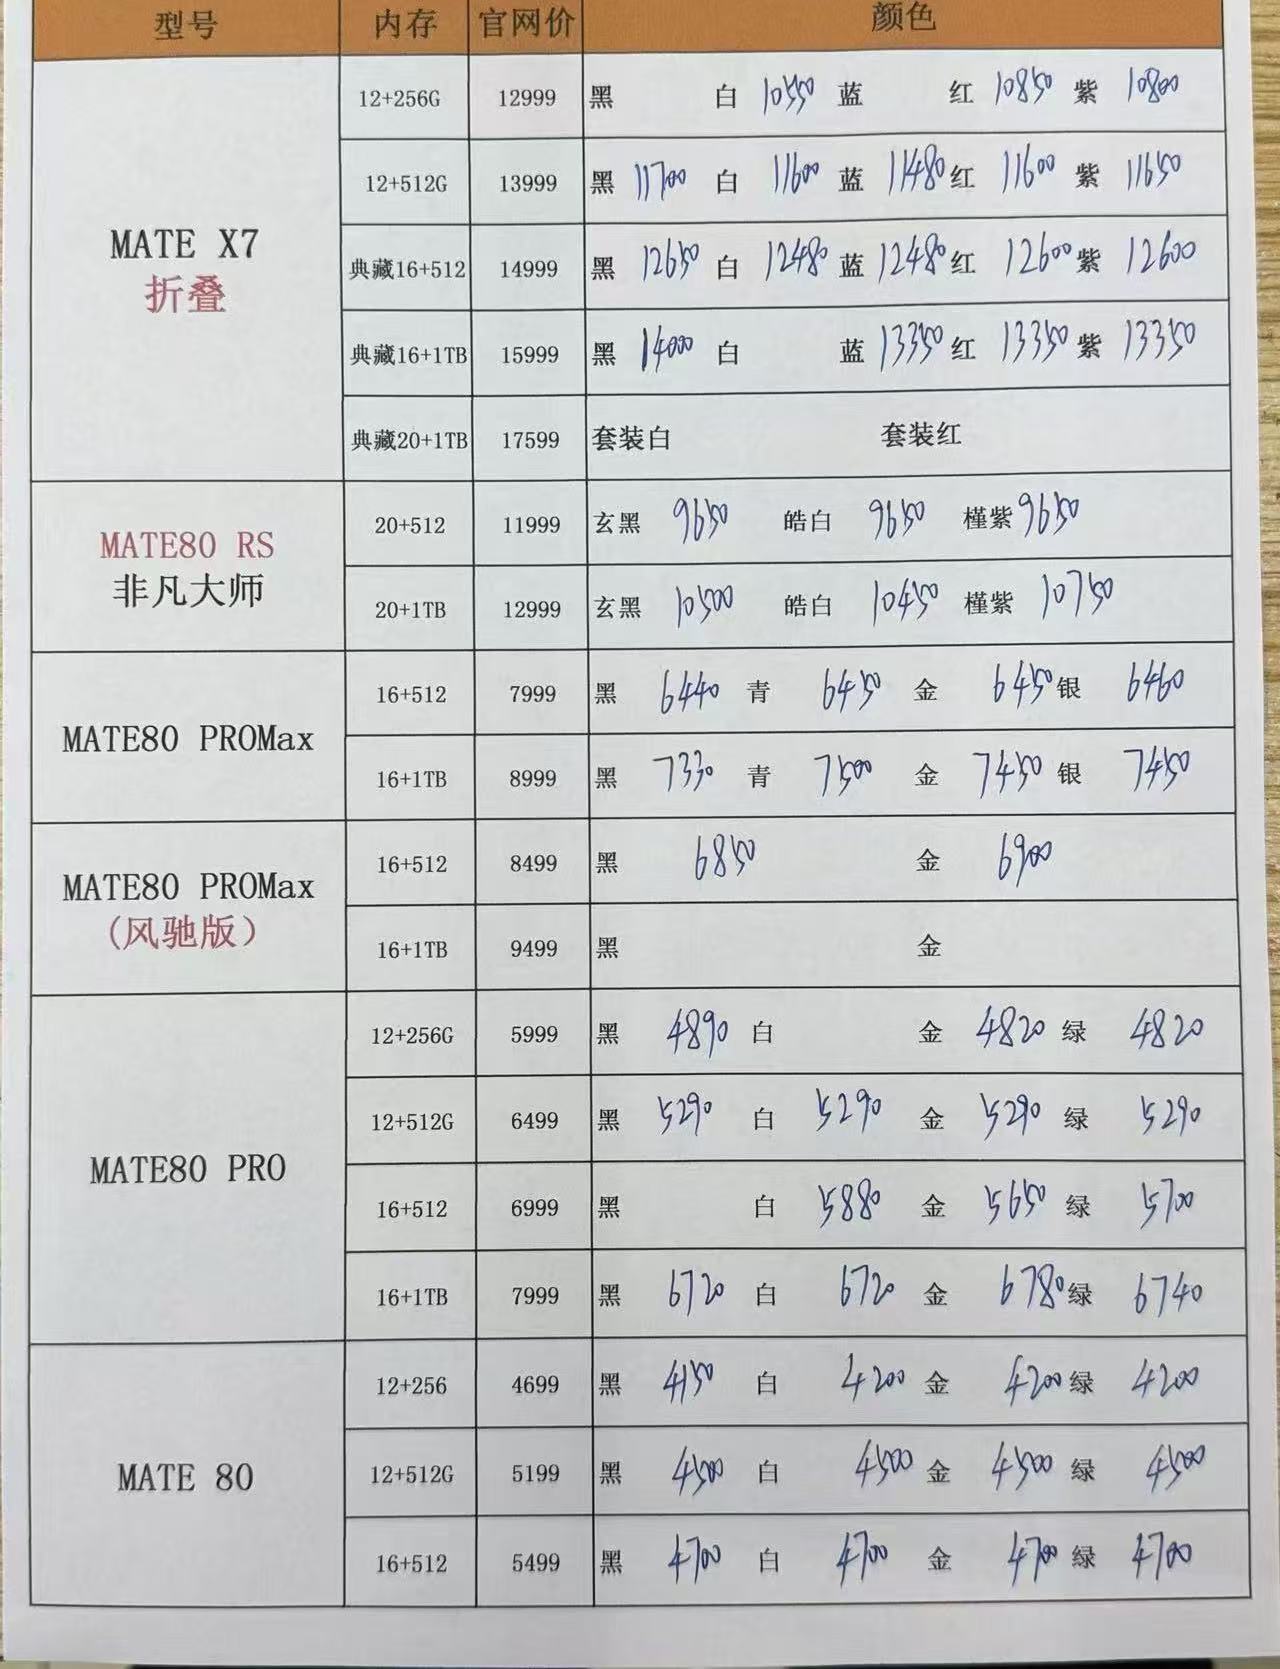 型号 内存 官网价 颜色
MATE X7
折叠
12+256G 12999 黑 白 10550 蓝 红 10850 紫 10800
12+512G 13999 黑 11700 白 11600 蓝 11480 红 11600 紫 11650
典藏16+512 14999 黑 12650 白 12480 蓝 12480 红 12600 紫 12600
典藏16+1TB 15999 黑 14000 白 蓝 13350 红 13350 紫 13350
典藏20+1TB 17599 套装白 套装红
MATE80 RS
非凡大师
20+512 11999 玄黑 9650 皓白 9650 槿紫 9650
20+1TB 12999 玄黑 10500 皓白 10450 槿紫 10750
MATE80 PROMax
16+512 7999 黑 6440 青 6450 金 6450 银 6460
16+1TB 8999 黑 7330 青 7500 金 7450 银 7450
MATE80 PROMax
(风驰版)
16+512 8499 黑 6850 金 6900
16+1TB 9499 黑 金
MATE80 PRO
12+256G 5999 黑 4890 白 金 4820 绿 4820
12+512G 6499 黑 5290 白 5290 金 5290 绿 5290
16+512 6999 黑 白 5880 金 5650 绿 5700
16+1TB 7999 黑 6720 白 6720 金 6780 绿 6740
MATE 80
12+256 4699 黑 4150 白 4200 金 4200 绿 4200
12+512G 5199 黑 4500 白 4500 金 4500 绿 4500
16+512 5499 黑 4700 白 4700 金 4700 绿 4700